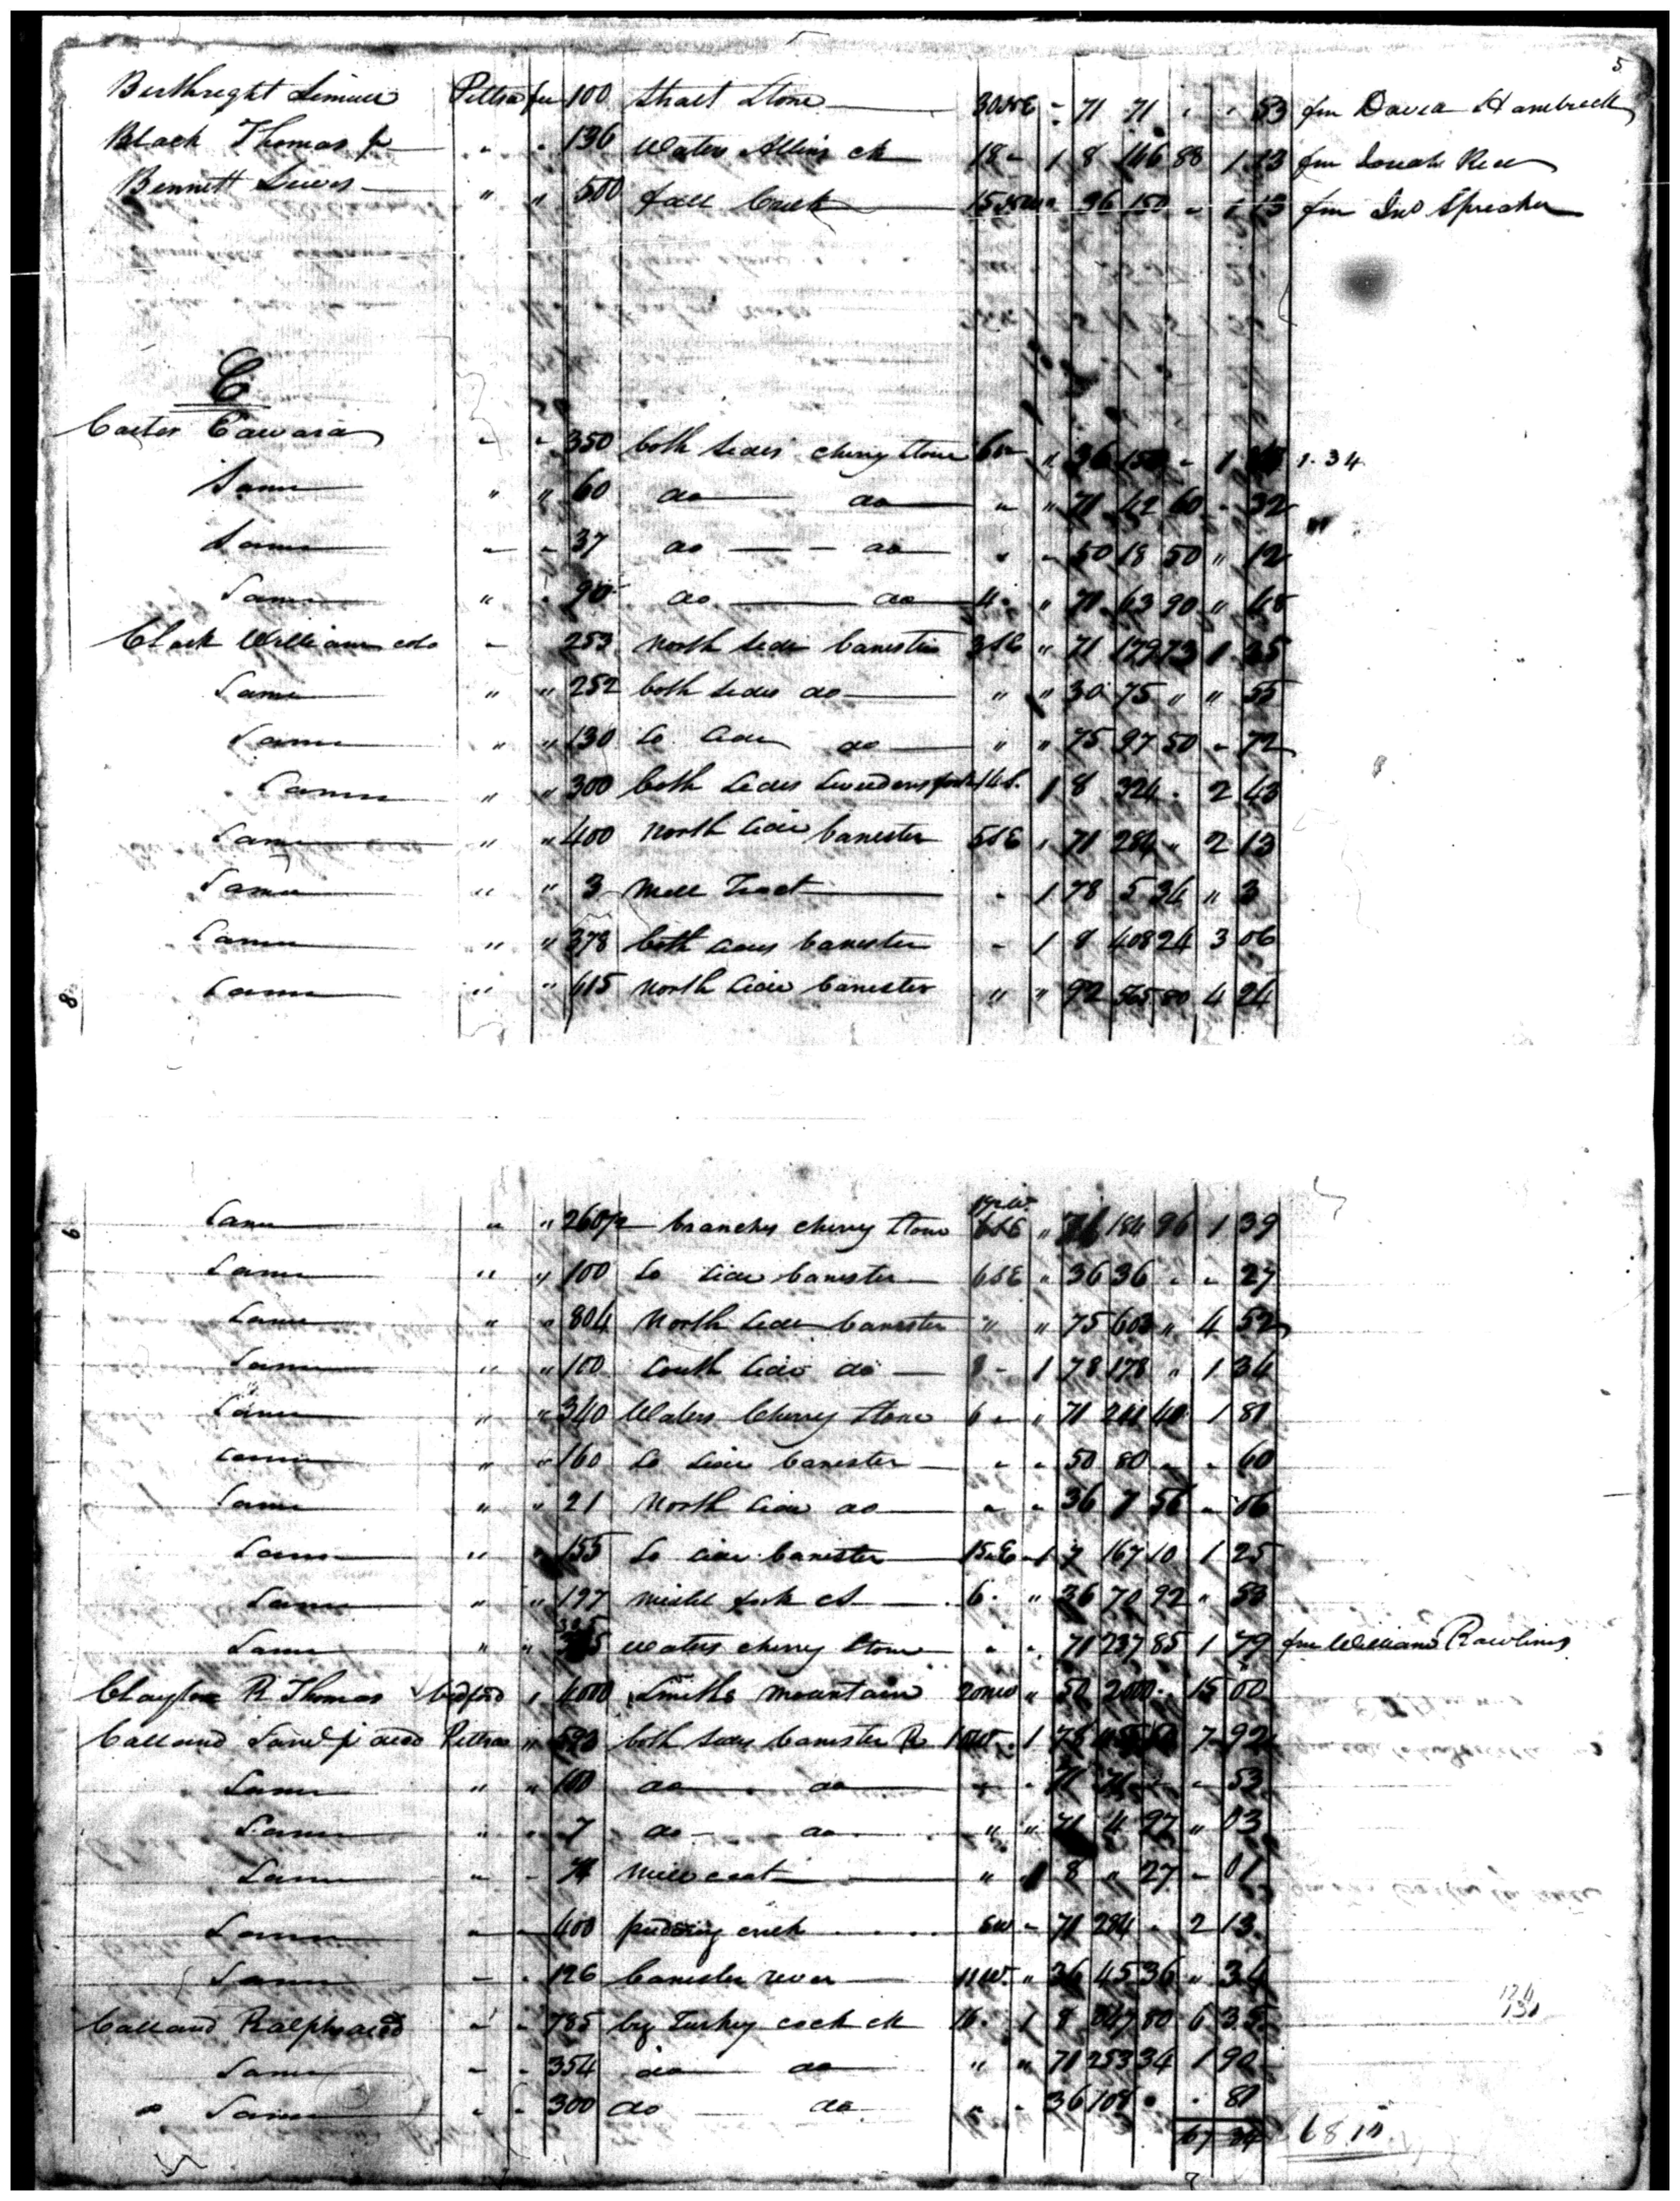 5
Berthright Limuel Pittsa fee 100 Strait Stone 30 NE " 71 71 " " 53 fm David Hambrick
Black Thomas " " 136 Waters Allins ck 18 " 1 8 146 88 1 13 fm Rice
Bennett Lewis " " 500 fall Creek 15 " 36 150 " 1 13 fm Jno Spreaker
C
Carter Edward " " 350 both sides cherry stone 6 " " 36 " 1 1.34
Same " " 60 do do " " 71 42 60 " 32
Same " " 37 do do " " 50 18 50 " 12
Same " " 90 do do 4 " " 71 63 90 " 48
Clark William colo " 253 North side banister 3 SE " 71 179 73 1 35
Same " " 252 both sides do " " 30 75 " " 55
Same " " 130 So side do " " 75 97 50 " 72
Same " " 300 both sides 14 S. 1 8 324 " 2 43
Same " " 400 North side banester 5 SE " 71 284 " 2 13
Same " " 3 Mill Tract " 1 78 5 34 " 3
Same " " 378 both sides banester " 1 8 408 24 3 06
8 Same " " 615 North side banester " " 92 565 80 4 24
9 Same " " 260 1/2 branches cherry stone 6 SE " 71 184 96 1 39
Same " " 100 So side banester 6 SE " 36 36 " " 27
Same " " 804 North side banester " " 75 603 " 4 52
Same " " 100 South side do 8 " 1 78 178 " 1 34
Same " " 340 Waters Cherry Stone 6 " " 71 241 40 1 81
Same " " 160 So side banester " " 50 80 " " 60
Same " " 21 North side do " " 36 7 56 " 06
Same " " 155 So side banester 15 SE 1 7 167 10 1 25
Same " " 197 fork ck 6 " 36 70 92 " 53
Same " " 335 Waters cherry stone " " 71 237 85 1 79 fm William Rawlins
Clayton R Thomas Bedford " 4000 Smiths mountain 20 NW " 50 2000 " 15 00
Calland Saml jr decd Pittsa " 593 both sides banester R W 1 78 7 92
Same " " 100 do do " " 71 71 " " 53
Same " " 7 do do " " 71 4 97 " 03
Same " " 1/4 Mill ceat " 1 8 " 27 " 01
Same " " 400 pudding creek SW " 71 284 " 2 13
Same " " 126 banester river 11 W. " 36 45 36 " 34
Calland Ralph decd " " 785 big Turkey cock ck 16 " 1 8 847 80 6 35
Same " " 354 do do " " 71 253 34 1 90
Same " " 300 do do " " 36 108 " " 81
67 84 68 15